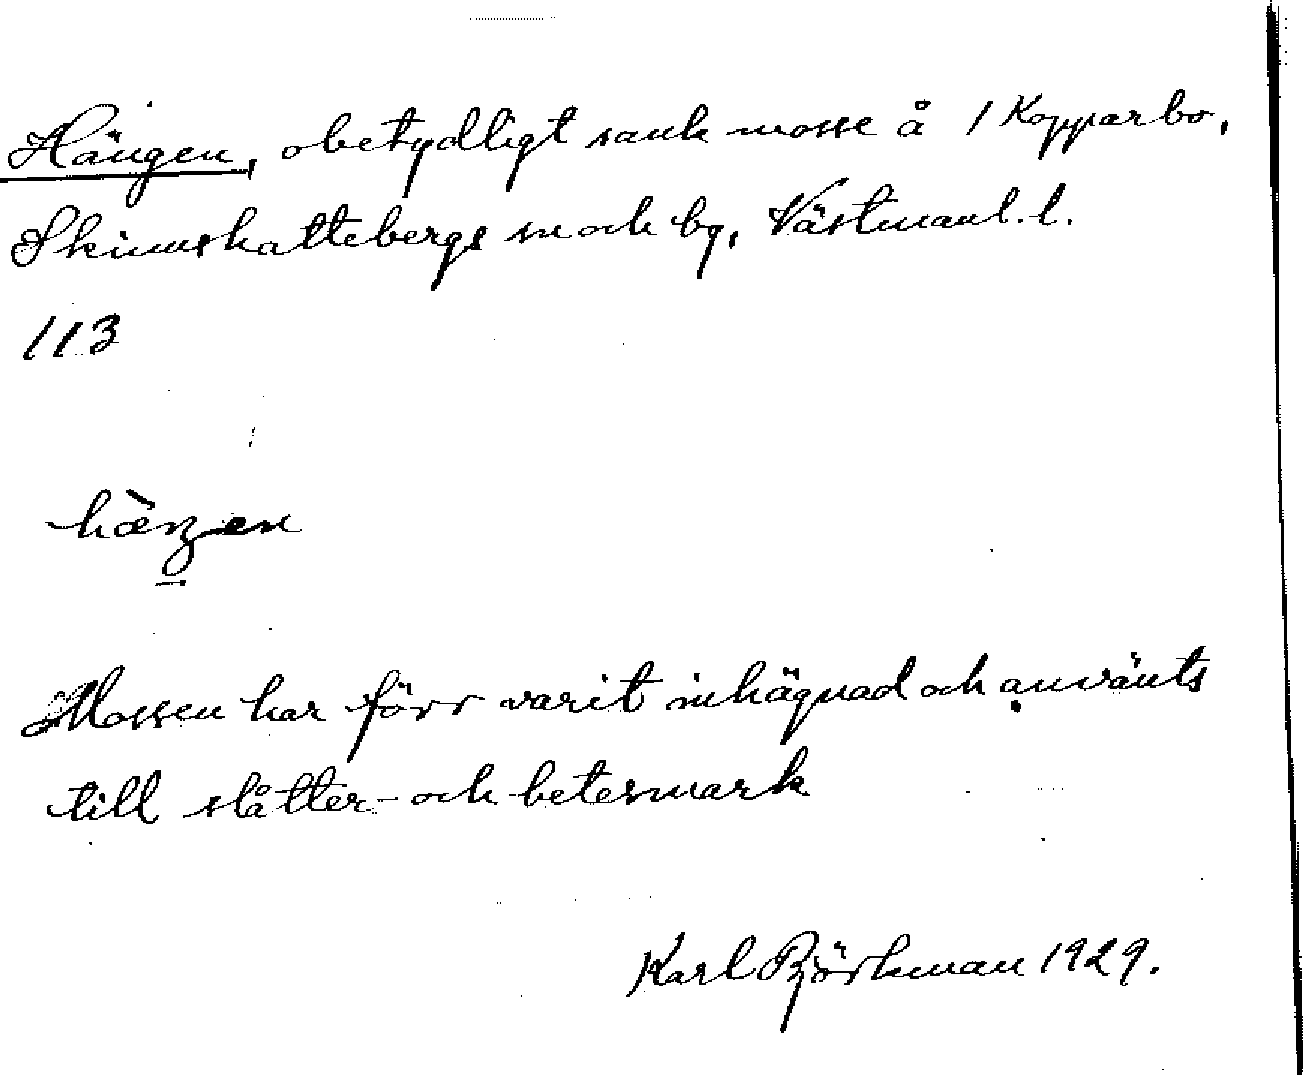 Hängen, obetydligt sank mosse å 1 Kopparbo,
Skinnskattebergs sn och bg, Västmanl. l.
113
hæ̀ŋen
Mossen har förr varit inhägnad och använts
till slåtter- och betesmark
Karl Björkman 1929.